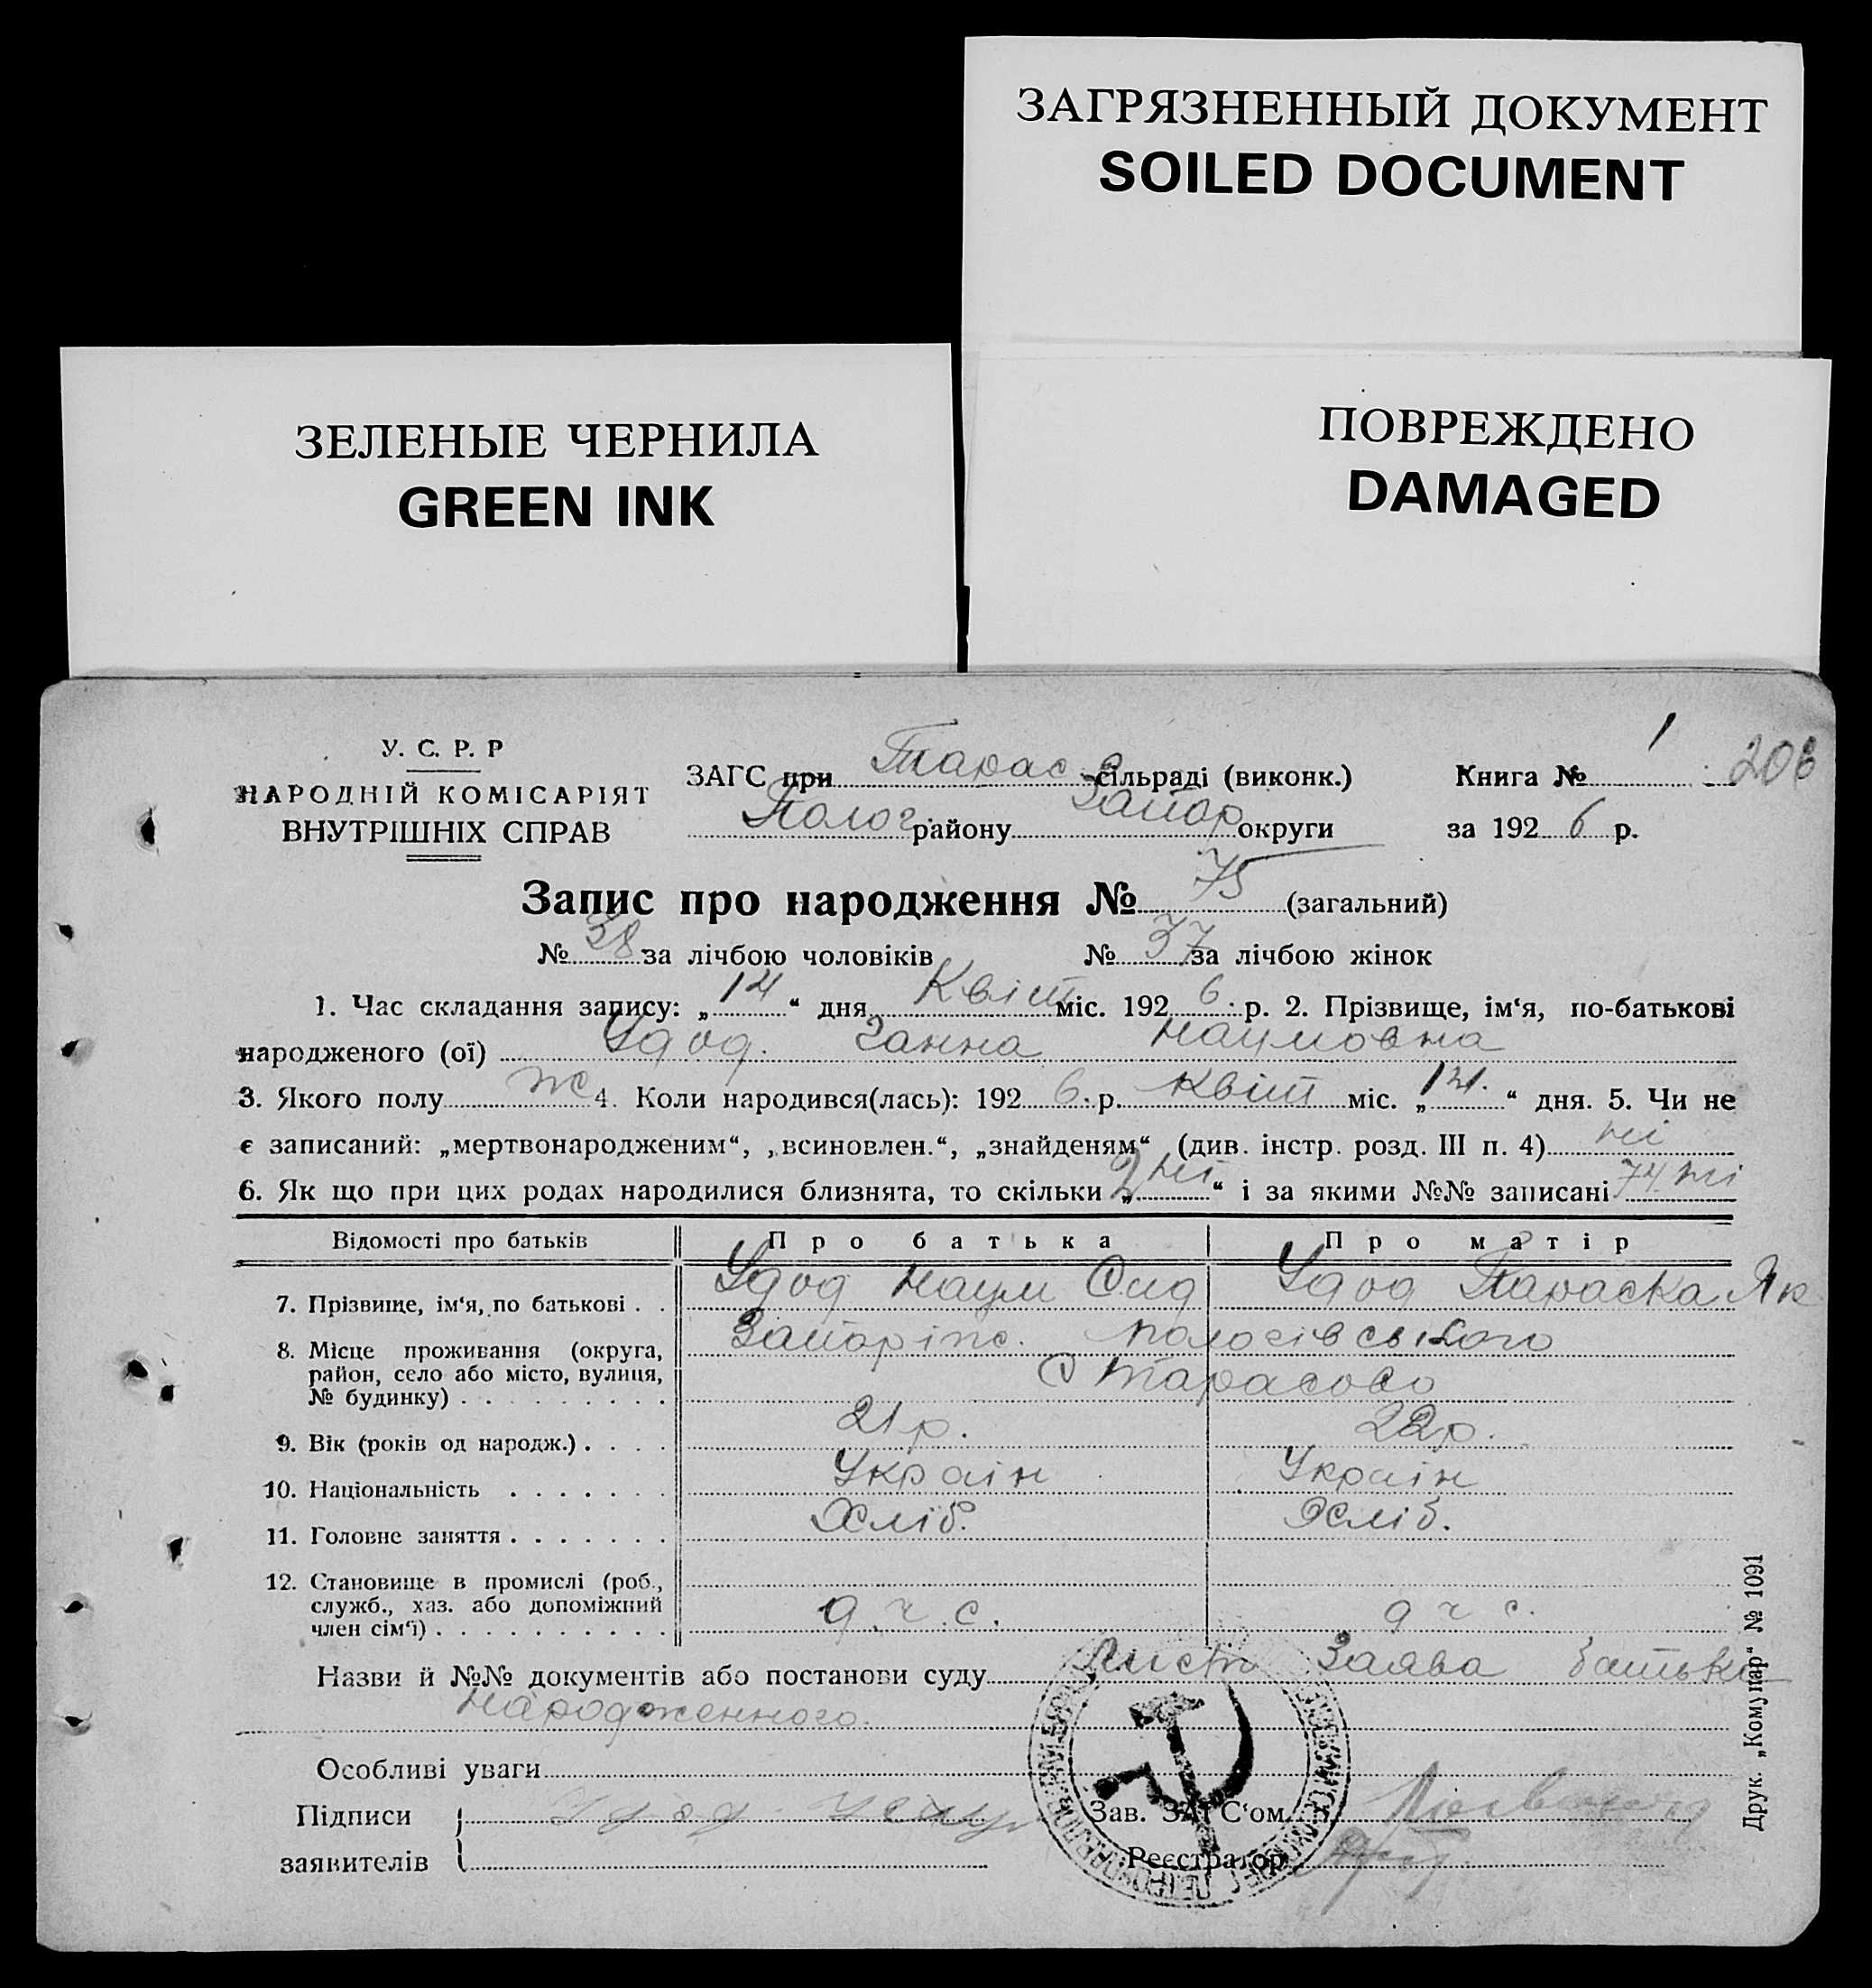 ЗАГРЯЗНЕННЫЙ ДОКУМЕНТ
SOILED DOCUMENT
ЗЕЛЕНЫЕ ЧЕРНИЛА
GREEN INK
ПОВРЕЖДЕНО
DAMAGED
У. С. Р. Р
НАРОДНІЙ КОМІСАРІЯТ
ВНУТРІШНІХ СПРАВ
ЗАГС при Тарас сільраді (виконк.)
Полог. району Запор округи
Книга № 1 208
за 1926 р.
Запис про народження № 75 (загальний)
№ 38 за лічбою чоловіків № 37 за лічбою жінок
1. Час складання запису: „14“ дня Квіт міс. 1926 р. 2. Прізвище, ім‘я, по-батькові
народженого (ої) Удод. Ганна Наумовна
3. Якого полу ж 4. Коли народився(лась): 1926. р. Квіт міс. „12.“ дня. 5. Чи не
є записаний: „мертвонародженим“, „всиновлен.“, „знайденям“ (див. інстр. розд. III п. 4) ні
6. Як що при цих родах народилися близнята, то скільки „2 ні“ і за якими №№ записані 74 ні
Відомості про батьків Про батька Про матір
7. Прізвище, ім‘я, по батькові . . Удод Наум Сид Удод Параска Як
8. Місце проживання (округа, район, село або місто, вулиця, № будинку) . . . . . . . . . Запоріж. Пологівського
с Тарасово
9. Вік (років од народж.) . . . . 21 р. 22 р.
10. Національність . . . . . . . Україн Україн
11. Головне заняття . . . . . . . Хліб. Хліб.
12. Становище в промислі (роб., служб., хаз. або допоміжний член сім‘ї) . . . . . . . . . . д. ч. с. д ч с.
Назви й №№ документів або постанови суду Заява батька
народженного.
Особливі уваги
Підписи заявителів Удод
Зав. ЗАГС‘ом
Реєстратор
Друк. „Комунар“ № 1091